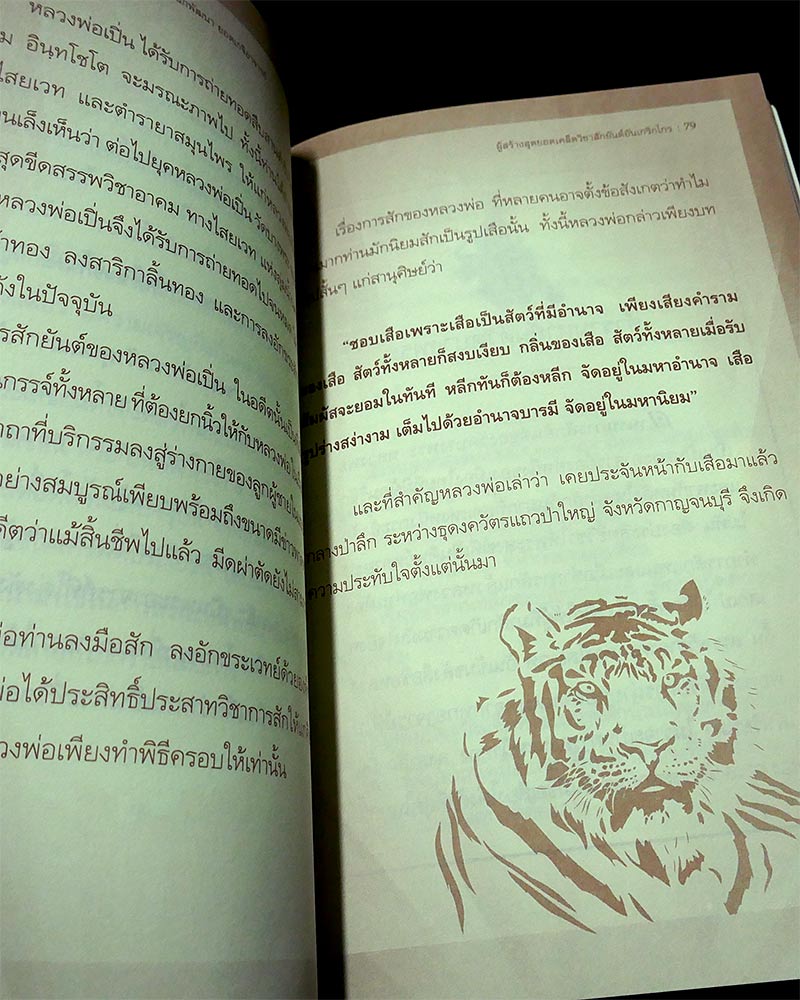 หลวงพ่อเปิ่น ได้รับการถ่ายทอดสืบสาน
ม อินฺทโชโต จะมรณะภาพไป ทั้งนี้
ไสยเวท และตำรายาสมุนไพร ให้แก่หลวง
นเล็งเห็นว่า ต่อไปยุคหลวงพ่อเปิ่น
สุดขีดสรรพวิชาอาคม ทางไสยเวท แห่ง
หลวงพ่อเปิ่นจึงได้รับการถ่ายทอดไปจน
้าทอง ลงสาริกาลิ้นทอง และการลงอักขระ
ดังในปัจจุบัน
รสักยันต์ของหลวงพ่อเปิ่น ในอดีตนั้นเป็น
กรรจ์ทั้งหลาย ที่ต้องยกนิ้วให้กับหลวงพ่อ
าถาที่บริกรรมลงสู่ร่างกายของลูกผู้ชาย
อย่างสมบูรณ์เพียบพร้อมถึงขนาดมีข่าว
ดีตว่าแม้สิ้นชีพไปแล้ว มีดผ่าตัดยังไม่
่อท่านลงมือสัก ลงอักขระเวทย์ด้วย
พ่อได้ประสิทธิ์ประสาทวิชาการสักให้
วงพ่อเพียงทำพิธีครอบให้เท่านั้น
ผู้สร้างสุดยอดเคล็ดวิชาสักยันต์อันเกริกไกร : 79
เรื่องการสักของหลวงพ่อ ที่หลายคนอาจตั้งข้อสังเกตว่าทำไม
มากท่านมักนิยมสักเป็นรูปเสือนั้น ทั้งนี้หลวงพ่อกล่าวเพียงบท
สั้นๆ แก่สานุศิษย์ว่า
“ชอบเสือเพราะเสือเป็นสัตว์ที่มีอำนาจ เพียงเสียงคำราม
ของเสือ สัตว์ทั้งหลายก็สงบเงียบ กลิ่นของเสือ สัตว์ทั้งหลายเมื่อรับ
สัมผัสจะยอมในทันที หลีกทันก็ต้องหลีก จัดอยู่ในมหาอำนาจ เสือ
รูปร่างสง่างาม เต็มไปด้วยอำนาจบารมี จัดอยู่ในมหานิยม”
และที่สำคัญหลวงพ่อเล่าว่า เคยประจันหน้ากับเสือมาแล้ว
กลางป่าลึก ระหว่างธุดงควัตรแถวป่าใหญ่ จังหวัดกาญจนบุรี จึงเกิด
ความประทับใจตั้งแต่นั้นมา